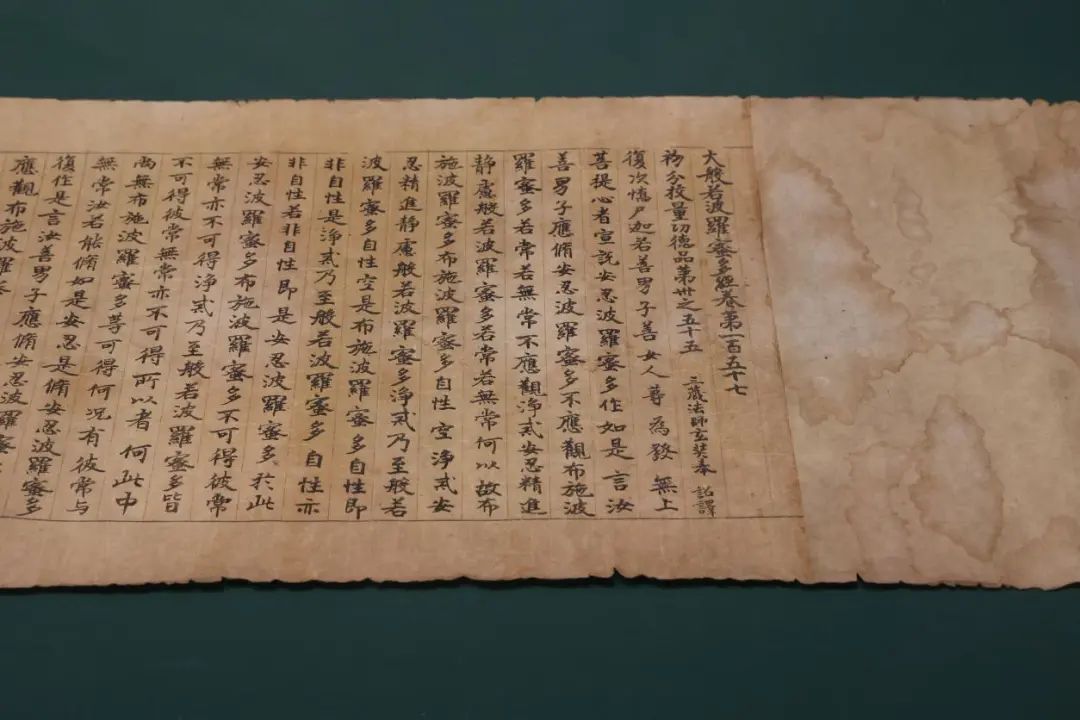 大般若波羅蜜多經卷第一百五十七
初分挍量功德品第卅之五十五 三藏法師玄奘奉 詔譯
復次憍尸迦若善男子善女人等為發無上
菩提心者宣說安忍波羅蜜多作如是言汝
善男子應脩安忍波羅蜜多不應觀布施波
羅蜜多若常若無常不應觀淨戒安忍精進
静慮般若波羅蜜多若常若無常何以故布
施波羅蜜多布施波羅蜜多自性空淨戒安
忍精進静慮般若波羅蜜多淨戒乃至般若
波羅蜜多自性空是布施波羅蜜多自性即
非自性是淨戒乃至般若波羅蜜多自性亦
非自性若非自性即是安忍波羅蜜多於此
安忍波羅蜜多布施波羅蜜多不可得彼常
無常亦不可得淨戒乃至般若波羅蜜多皆
不可得彼常無常亦不可得所以者何此中
尚無布施波羅蜜多等可得何況有彼常与
無常汝若能脩如是安忍是脩安忍波羅蜜多
復作是言汝善男子應脩安忍波羅
應觀布施波羅